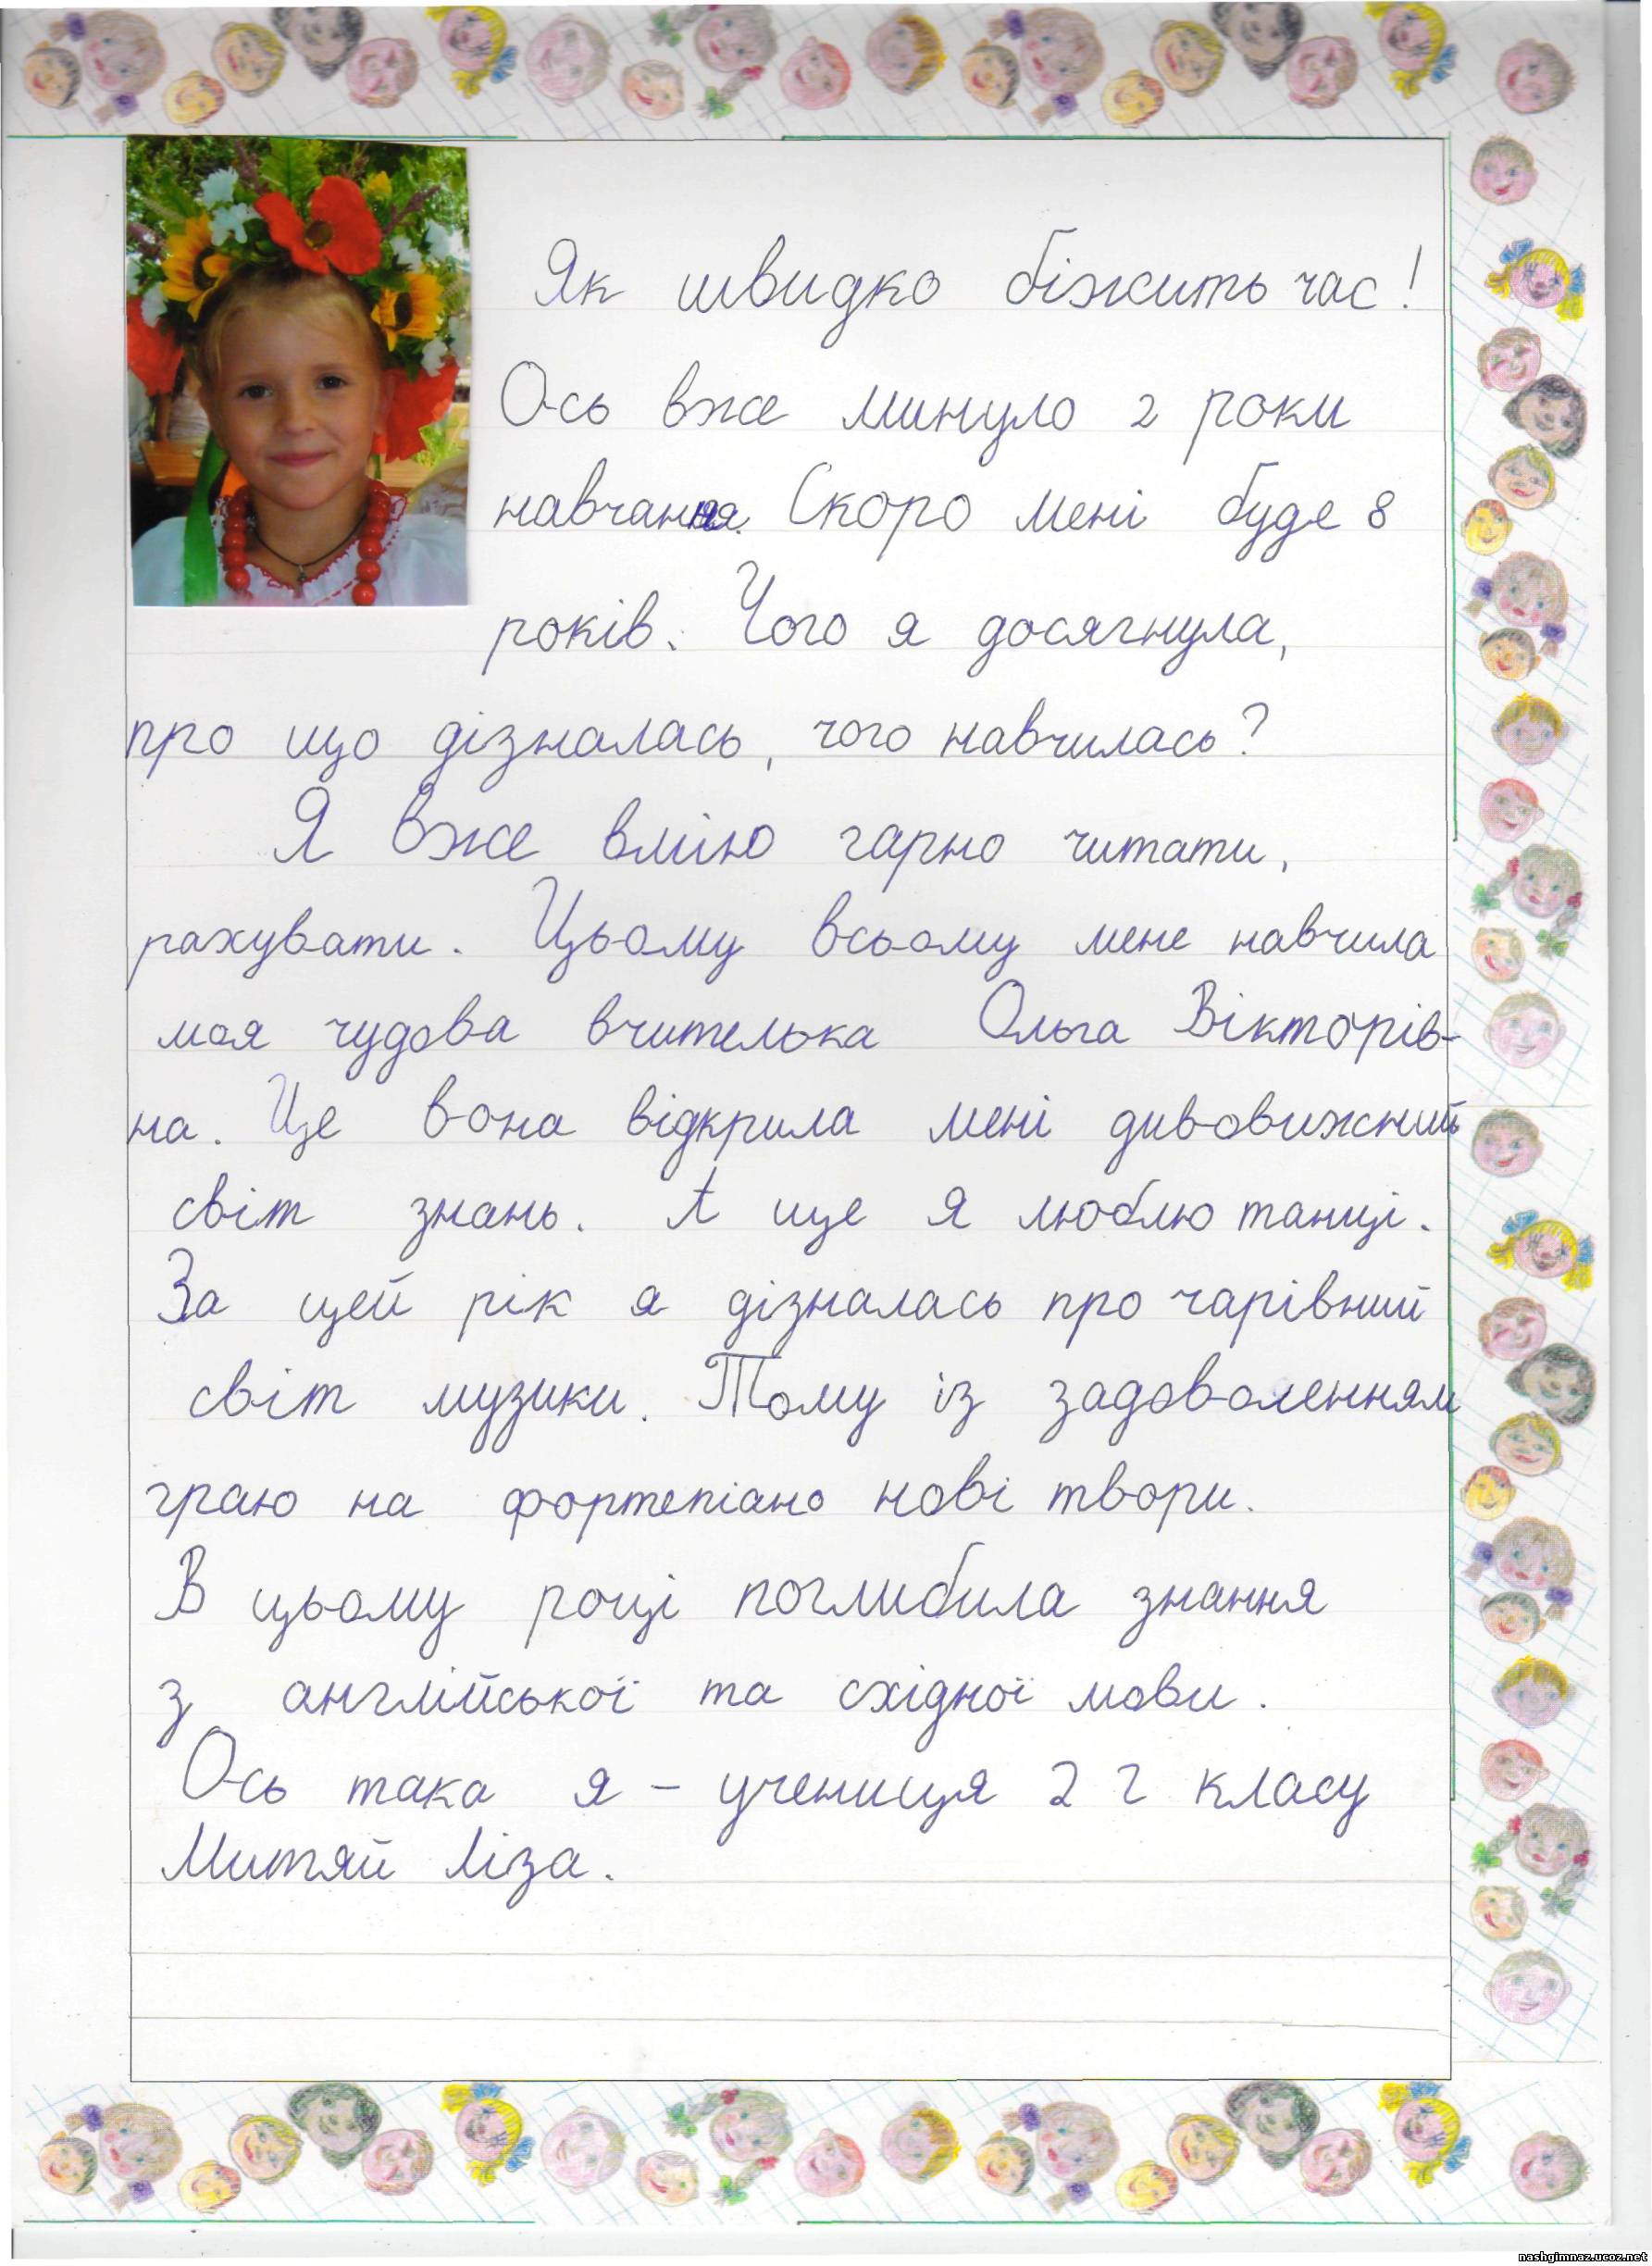 Як швидко біжить час!
Ось вже минуло 2 роки
навчання. Скоро мені буде 8
років. Чого я досягнула,
про що дізналась, чого навчилась?
Я вже вмію гарно читати,
рахувати. Цьому всьому мене навчила
моя чудова вчителька Ольга Вікторів-
на. Це вона відкрила мені дивовижний
світ знань. А ще я люблю танці.
За цей рік я дізналась про чарівний
світ музики. Тому із задоволенням
граю на фортепіано нові твори.
В цьому році поглибила знання
з англійської та східної мови.
Ось така я – учениця 2 Г класу
Митяй Ліза.
nashgimnaz.ucoz.net